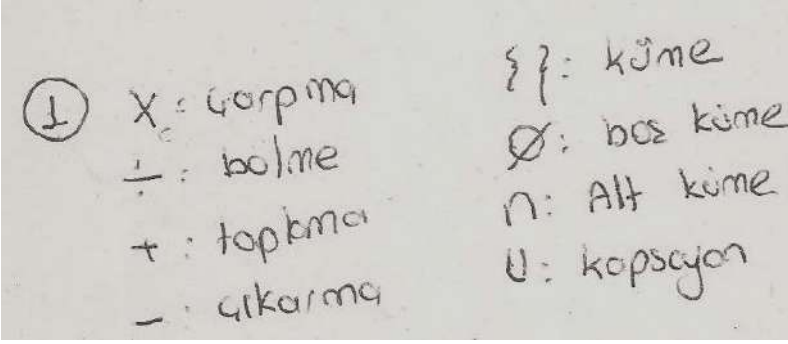 ① X: çarpma
÷: bölme
+: toplama
-: çıkarma
{ }: küme
Ø: boş küme
∩: Alt küme
U: kapsayan